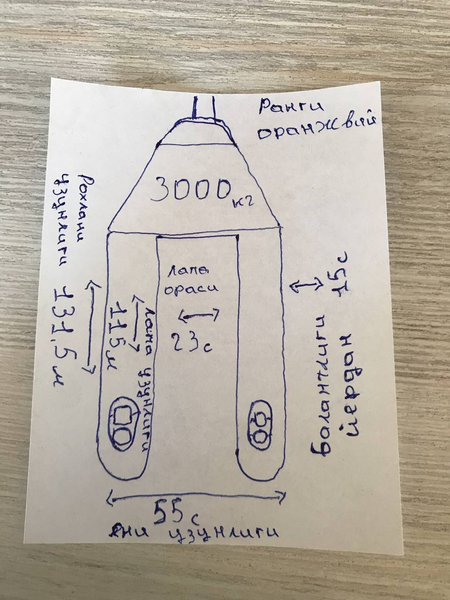 Ранги
оранжвий
3000кг
Рохлани
узунлиги 131,5м
лапа
ораси
23с
лапа узунлиги
115м
Балантлиги 15с
йердан
55с
яни узунлиги